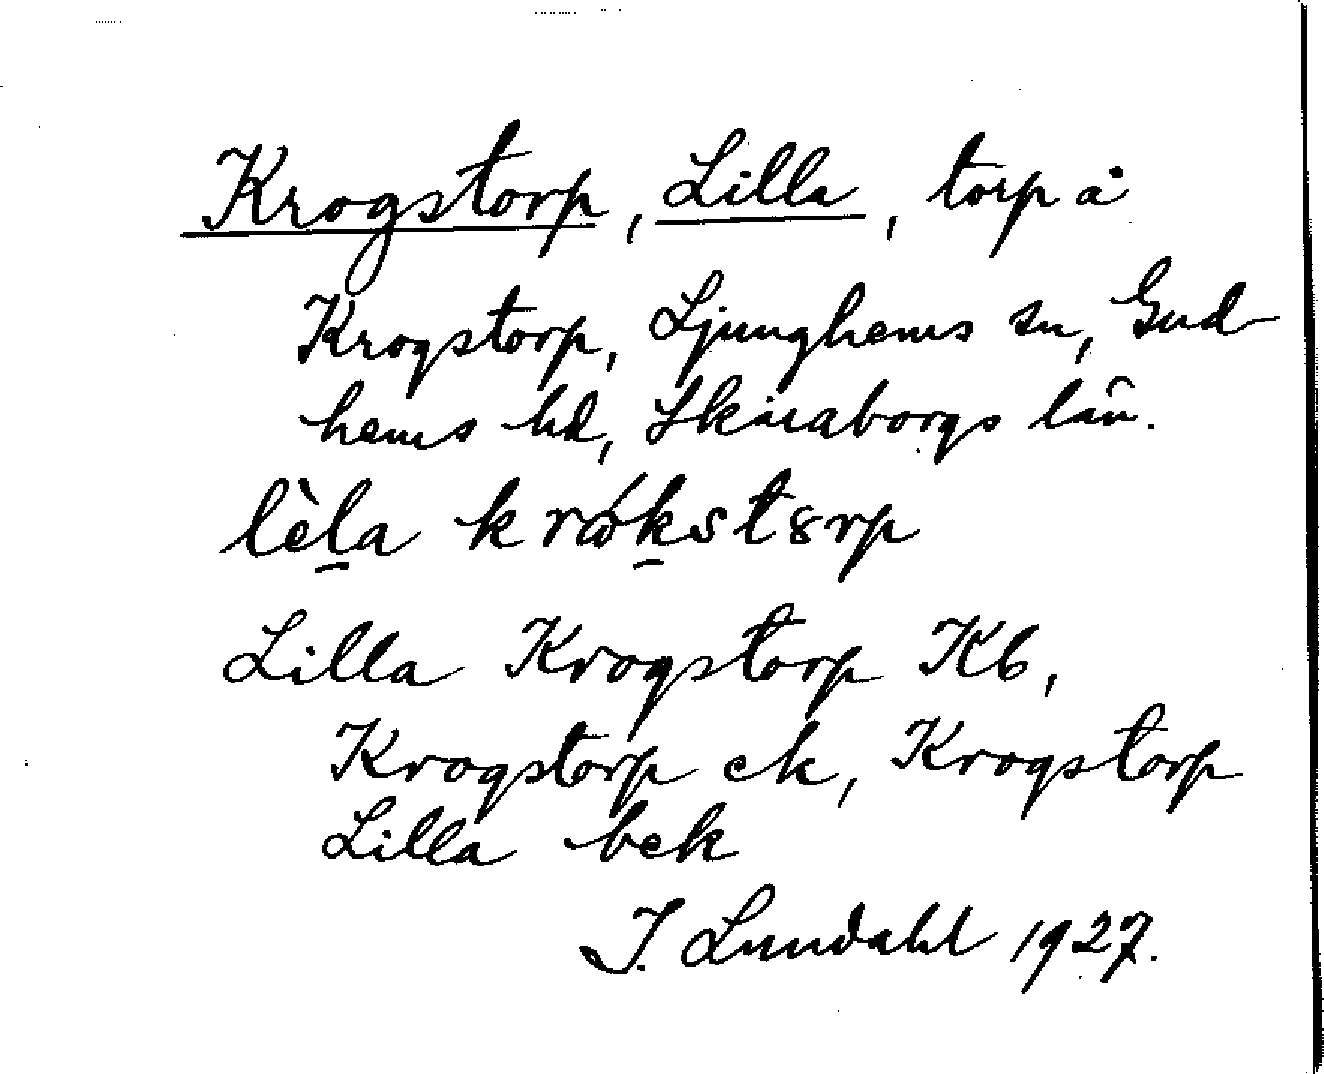 Krogstorp, Lilla, torp å
Krogstorp, Ljunghems sn, Gud
hems hd, Skaraborgs län.
lèla krókst8rp
Lilla Krogstorp Kb,
Krogstorp ek, Krogstorp
Lilla bek
I. Lundahl 1927.